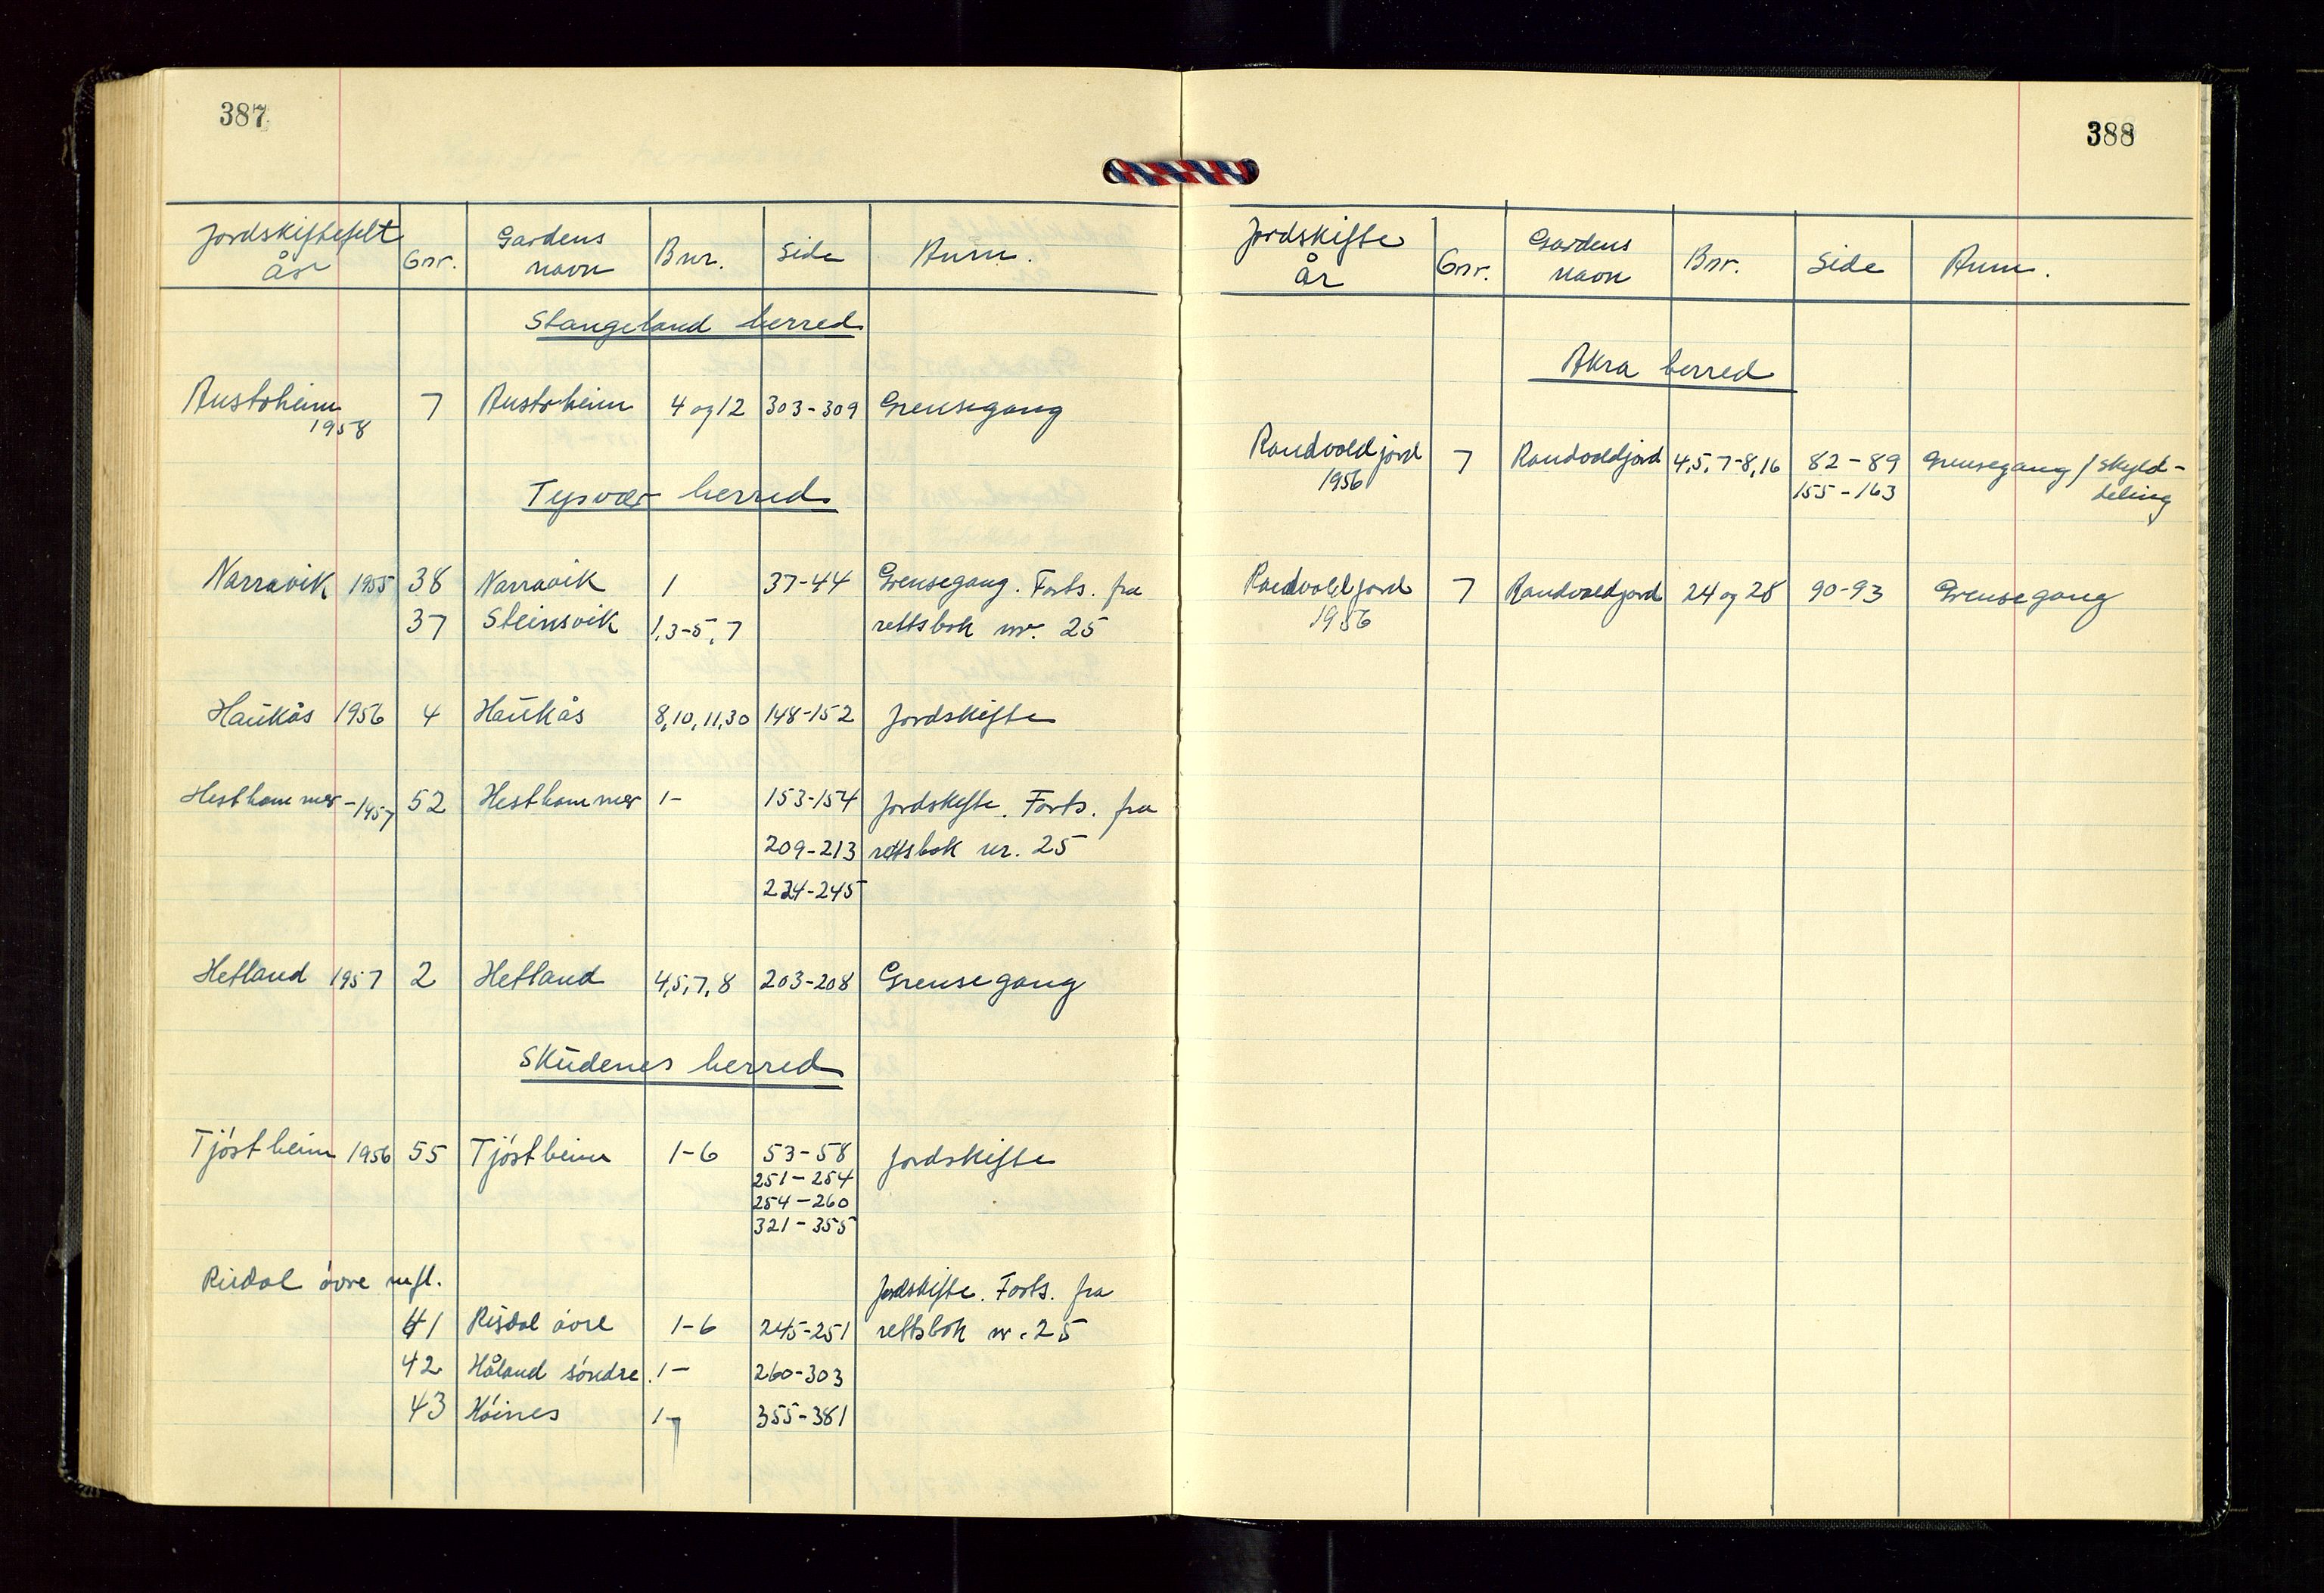 387
Jordskiftefelt år Gnr. Gardens navn Bnr. Side Anm.
Stangeland herred
Austrheim 1958 7 Austrheim 4 og 12 303-309 Grensegang
Tysvær herred
Narravik 1955 38 Narravik 1 37-44 Grensegang. Forts. fra
37 Steinsvik 1,3-5,7 rettsbok nr. 25
Haukås 1956 4 Haukås 8,10,11,30 148-152 Jordskifte
Hesthammer-1957 52 Hesthammer 1- 153-154 Jordskifte. Forts. fra
209-213 rettsbok nr. 25
234-245
Hetland 1957 2 Hetland 4,5,7,8 203-208 Grensegang
Skudenes herred
Tjøstheim 1956 55 Tjøstheim 1-6 53-58 Jordskifte
251-254
254-260
321-355
Risdal øvre m.fl. Jordskifte. Forts. fra
41 Risdal øvre 1-6 245-251 rettsbok nr. 25
42 Håland søndre 1- 260-303
43 Høines 1- 355-381
388
Jordskifte år Gnr. Gardens navn Bnr. Side Anm.
Åkra herred
Sandvoldjord 1956 7 Sandvoldjord 4,5,7-8,16 82-89 Grensegang / skyld-
155-163 deling
Sandvoldjord 1956 7 Sandvoldjord 24 og 28 90-93 Grensegang